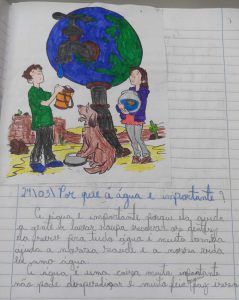 24\03\ Por que a água é importante?
A água é importante porque ela ajuda
a gente de lavar roupa escovar os dentes
da para fica tudo água é muito
ajuda a nossa saúde e a nossa vida
água.
A água é uma coisa muito importante
não pode desperdiçar é muito feio